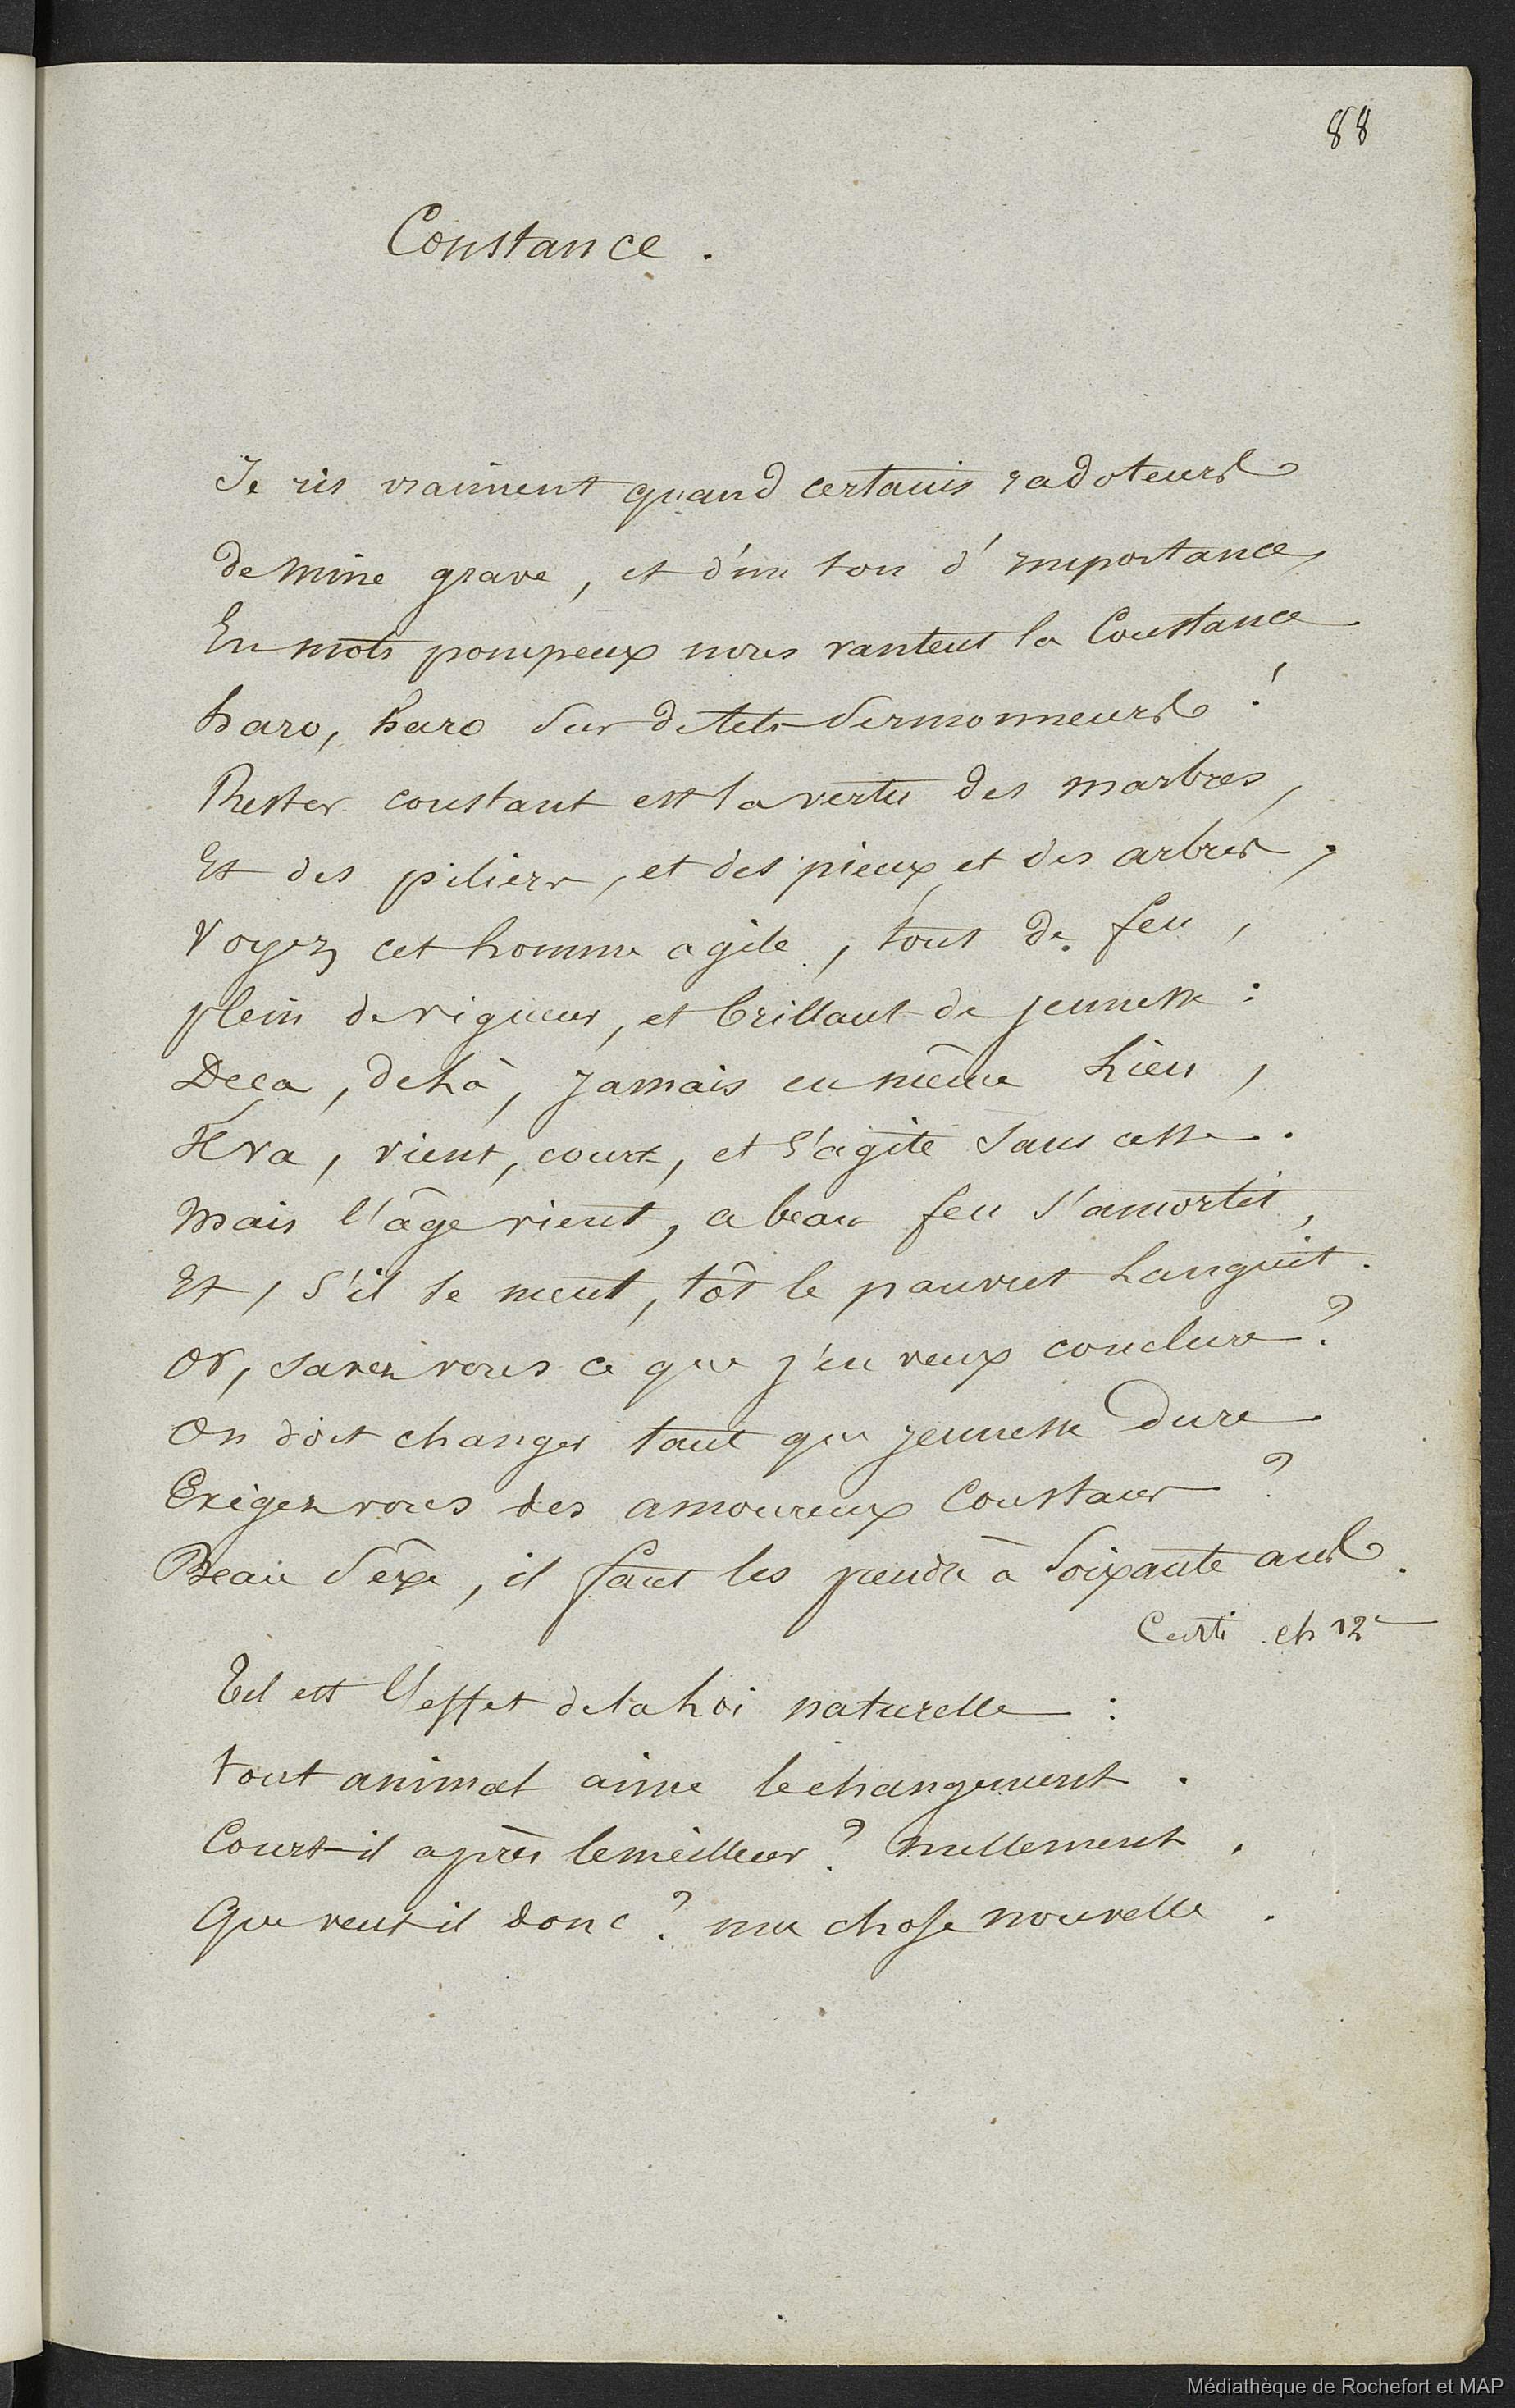 88
Constance.
Je ris vraiment quand certains radoteurs
de mine grave, et d'un ton d'importance,
En mots pompeux nous vantent la Constance
haro, haro sur de tels sermonneurs !
Rester constant est la vertu des marbres,
Et des piliers, et des pieux, et des arbres,
Voyez cet homme agile, tout de feu,
plein de vigueur, et brillant de jeunesse :
Deça, de là, jamais en même Lieu,
Il va, vient, court, et s'agite sans cesse.
Mais l'âge vient, ce beau feu s'amortit,
Et, s'il se meut, tôt le pauvret Languit.
Or, savez vous ce que j'en veux conclure ?
On doit changer tant que jeunesse dure
Exigez vous des amoureux Constans ?
Beau sêxe, il faut les prendre à Soixante ans.
Casti ch 12e
Tel est l'effet de la Loi naturelle :
tout animal aime le changement.
Court-il après le meilleur ? nullement.
Que veut-il donc ? une chose nouvelle.
Médiathèque de Rochefort et MAP